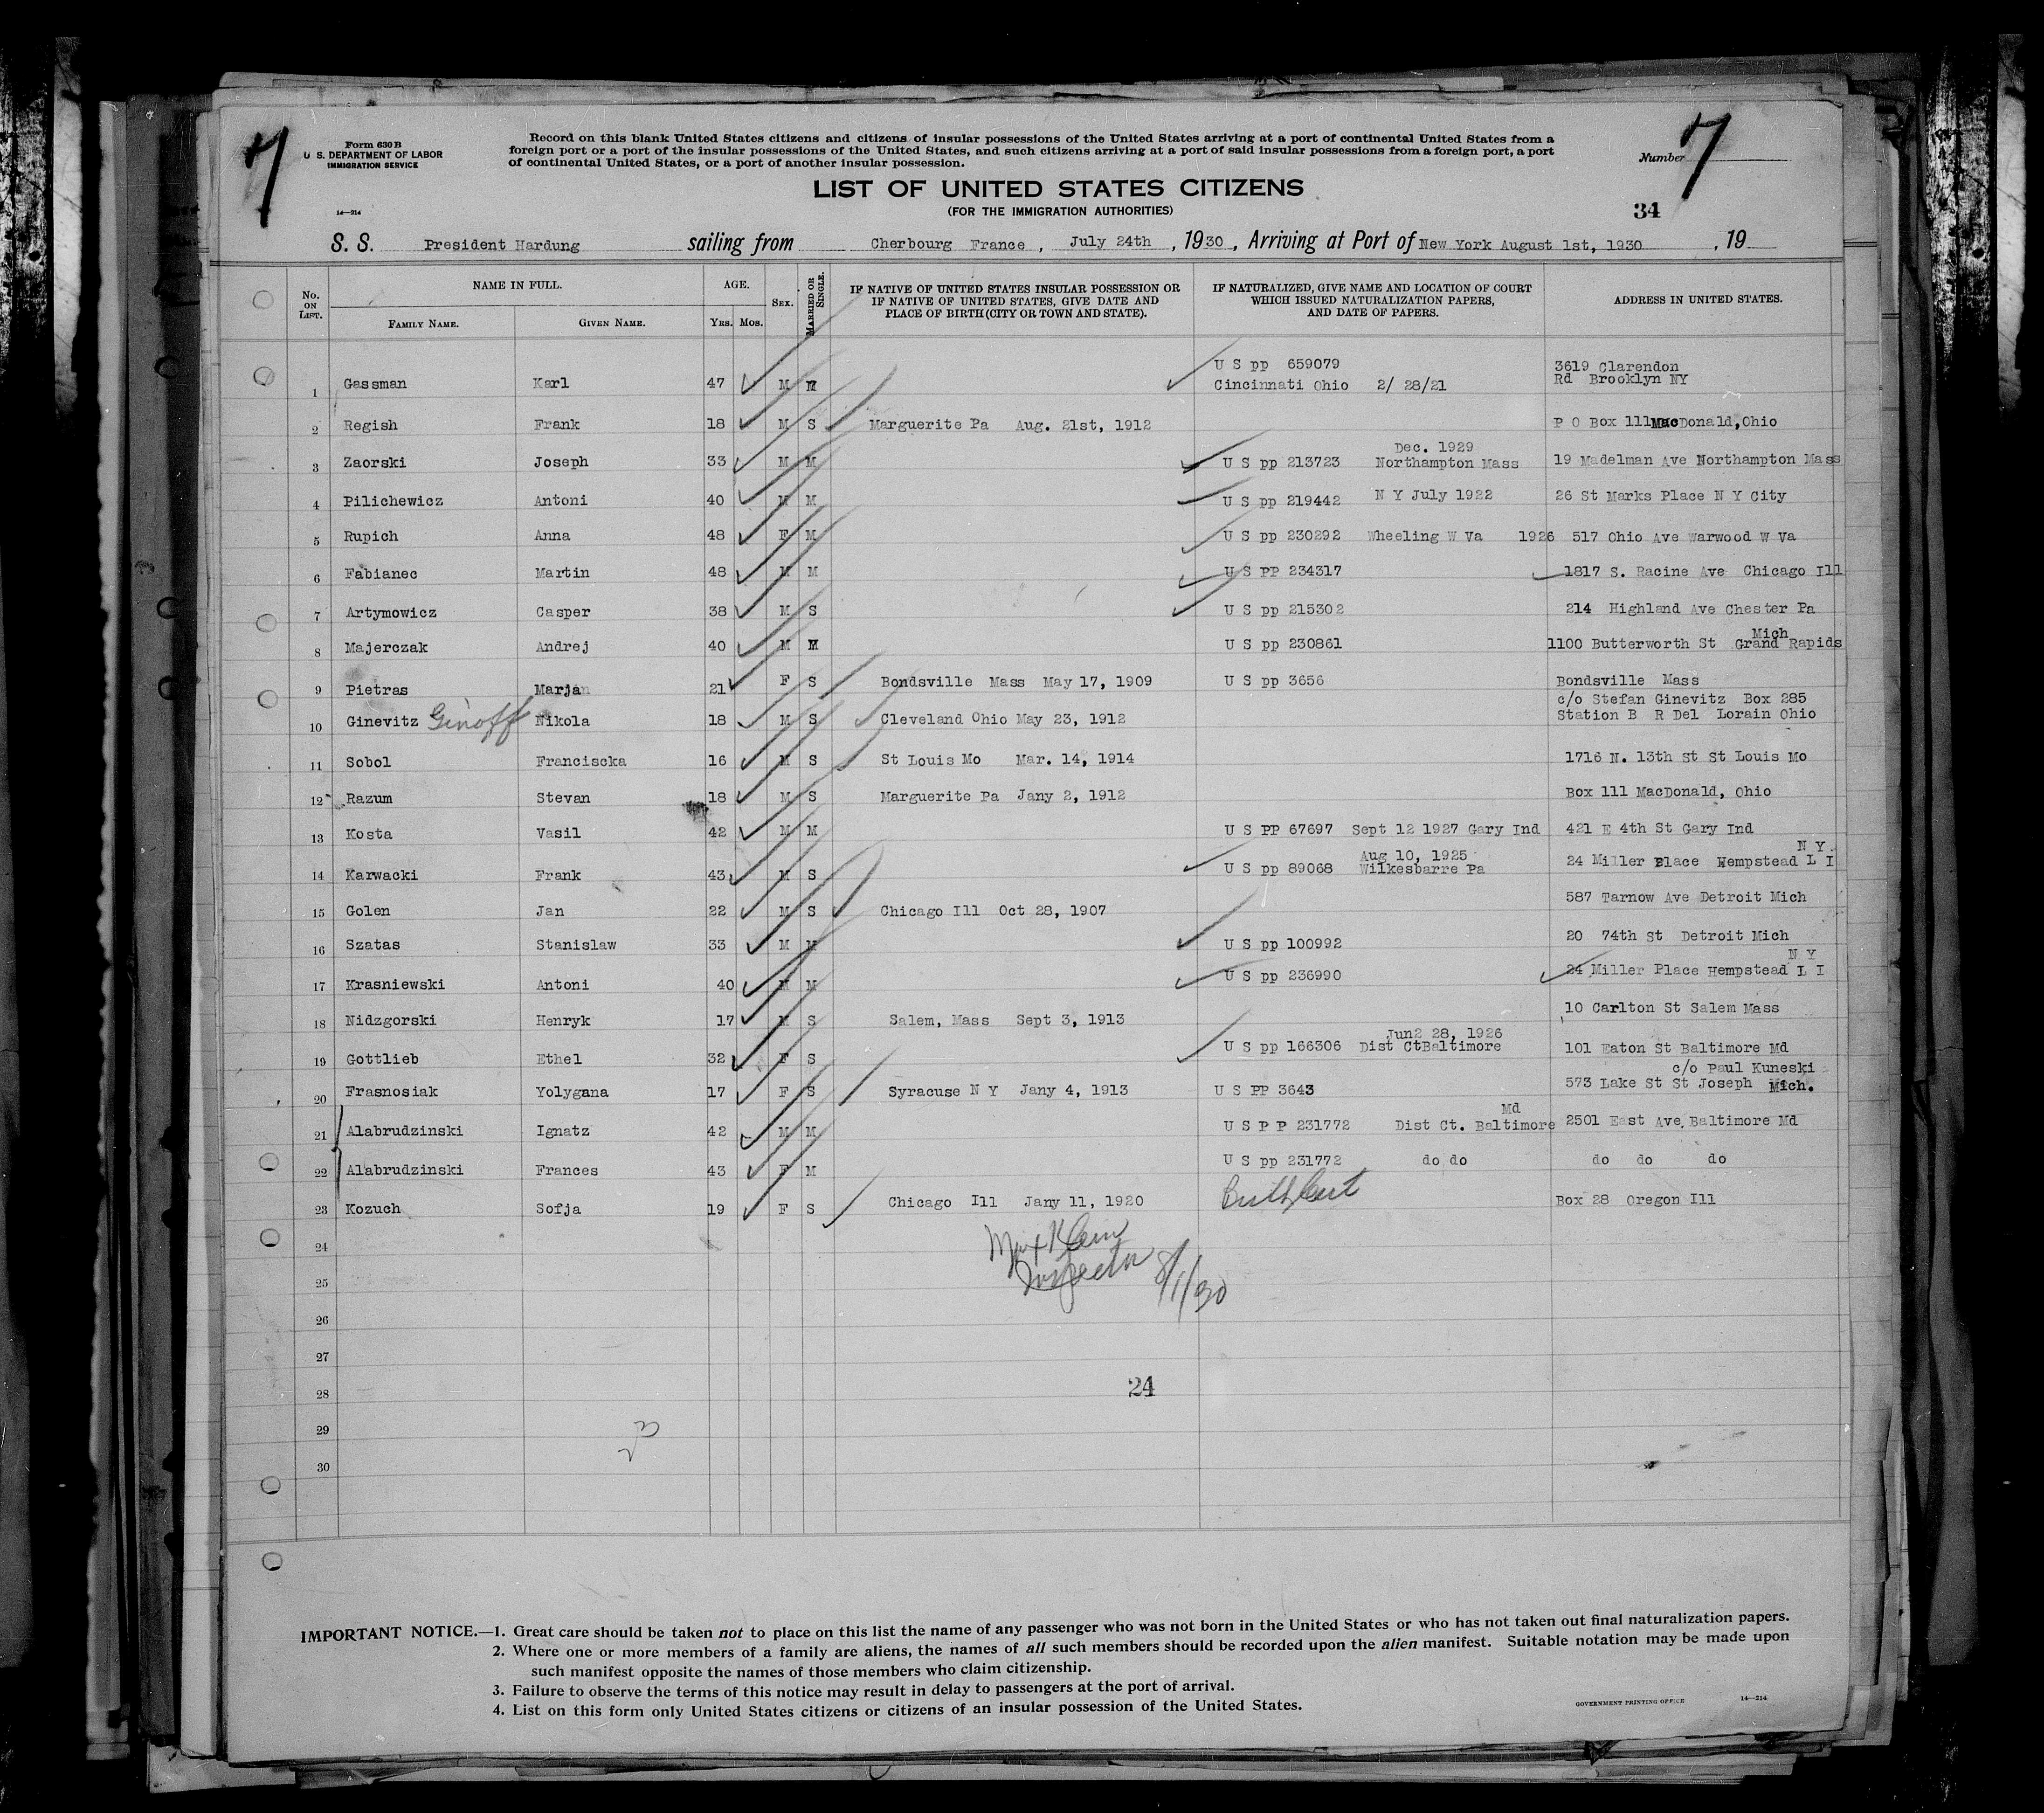 7
Form 630 B
U S. DEPARTMENT OF LABOR
IMMIGRATION SERVICE
14—214
Record on this blank United States citizens and citizens of insular possessions of the United States arriving at a port of continental United States from a
foreign port or a port of the insular possessions of the United States, and such citizens arriving at a port of said insular possessions from a foreign port, a port
of continental United States, or a port of another insular possession.
Number 7
LIST OF UNITED STATES CITIZENS
(FOR THE IMMIGRATION AUTHORITIES)
34
S. S. President Hardung sailing from Cherbourg France, July 24th, 1930, Arriving at Port of New York August 1st, 1930, 19
No. ON LIST. NAME IN FULL. FAMILY NAME. GIVEN NAME. AGE. YRS. MOS. SEX. MARRIED OR SINGLE. IF NATIVE OF UNITED STATES INSULAR POSSESSION OR IF NATIVE OF UNITED STATES, GIVE DATE AND PLACE OF BIRTH (CITY OR TOWN AND STATE). IF NATURALIZED, GIVE NAME AND LOCATION OF COURT WHICH ISSUED NATURALIZATION PAPERS, AND DATE OF PAPERS. ADDRESS IN UNITED STATES.
1 Gassman Karl 47 M M U S pp 659079 Cincinnati Ohio 2/ 28/21 3619 Clarendon Rd Brooklyn NY
2 Regish Frank 18 M S Marguerite Pa Aug. 21st, 1912 P O Box 111 MacDonald, Ohio
3 Zaorski Joseph 33 M M U S pp 213723 Dec. 1929 Northampton Mass 19 Madelman Ave Northampton Mass
4 Pilichewicz Antoni 40 M M U S pp 219442 N Y July 1922 26 St Marks Place N Y City
5 Rupich Anna 48 F M U S pp 230292 Wheeling W Va 1926 517 Ohio Ave Warwood W Va
6 Fabianec Martin 48 M M U S PP 234317 1817 S. Racine Ave Chicago Ill
7 Artymowicz Casper 38 M S U S pp 215302 214 Highland Ave Chester Pa
8 Majerczak Andrej 40 M M U S pp 230861 1100 Butterworth St Grand Rapids Mich
9 Pietras Marjan 21 F S Bondsville Mass May 17, 1909 U S pp 3656 Bondsville Mass
10 Ginevitz Ginoff Nikola 18 M S Cleveland Ohio May 23, 1912 c/o Stefan Ginevitz Box 285 Station B R Del Lorain Ohio
11 Sobol Franciscka 16 M S St Louis Mo Mar. 14, 1914 1716 N. 13th St St Louis Mo
12 Razum Stevan 18 M S Marguerite Pa Jany 2, 1912 Box 111 MacDonald, Ohio
13 Kosta Vasil 42 M M U S PP 67697 Sept 12 1927 Gary Ind 421 E 4th St Gary Ind
14 Karwacki Frank 43 M S U S pp 89068 Aug 10, 1925 Wilkesbarre Pa 24 Miller Place Hempstead L I N Y.
15 Golen Jan 22 M S Chicago Ill Oct 28, 1907 587 Tarnow Ave Detroit Mich
16 Szatas Stanislaw 33 M M U S pp 100992 20 74th St Detroit Mich
17 Krasniewski Antoni 40 M M U S pp 236990 24 Miller Place Hempstead L I N Y
18 Nidzgorski Henryk 17 M S Salem, Mass Sept 3, 1913 10 Carlton St Salem Mass
19 Gottlieb Ethel 32 F S U S pp 166306 Jun2 28, 1926 Dist CtBaltimore 101 Eaton St Baltimore Md
20 Frasnosiak Yolygana 17 F S Syracuse N Y Jany 4, 1913 U S PP 3643 c/o Paul Kuneski 573 Lake St St Joseph Mich.
21 Alabrudzinski Ignatz 42 M M U S P P 231772 Dist Ct. Baltimore Md 2501 East Ave. Baltimore Md
22 Alabrudzinski Frances 43 F M U S pp 231772 do do do do do
23 Kozuch Sofja 19 F S Chicago Ill Jany 11, 1920 Box 28 Oregon Ill
24 Max Klein
25 Inspector 8/1/30
26
27
28 24
29 23
30
IMPORTANT NOTICE.—1. Great care should be taken not to place on this list the name of any passenger who was not born in the United States or who has not taken out final naturalization papers.
2. Where one or more members of a family are aliens, the names of all such members should be recorded upon the alien manifest. Suitable notation may be made upon
such manifest opposite the names of those members who claim citizenship.
3. Failure to observe the terms of this notice may result in delay to passengers at the port of arrival.
4. List on this form only United States citizens or citizens of an insular possession of the United States.
GOVERNMENT PRINTING OFFICE 14—214